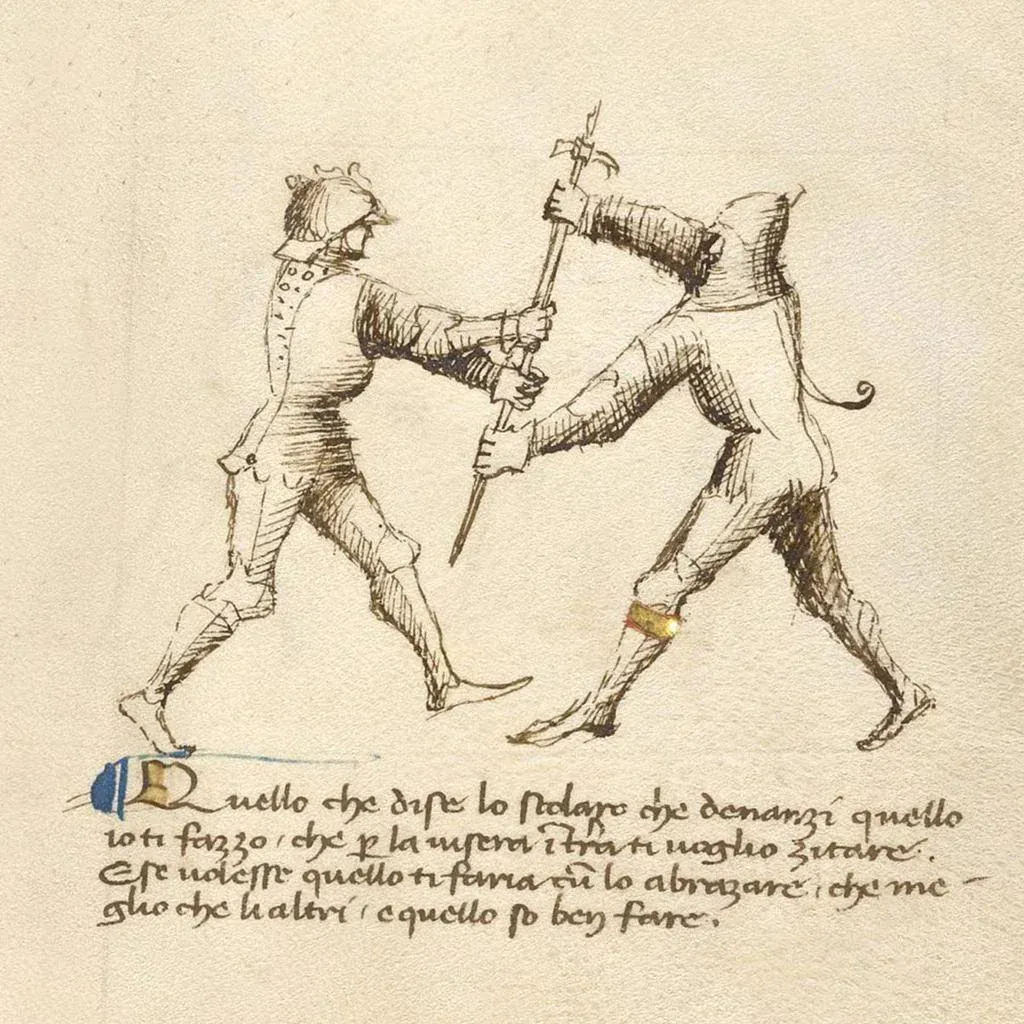 Quello che dise lo scolaro che denanzi quello
io ti fazzo, che p la visera ī tr̄a ti voglio zitare.
E se volesse quello ti faria cū lo abrazare, che me-
glio che li altri, e quello so ben fare.